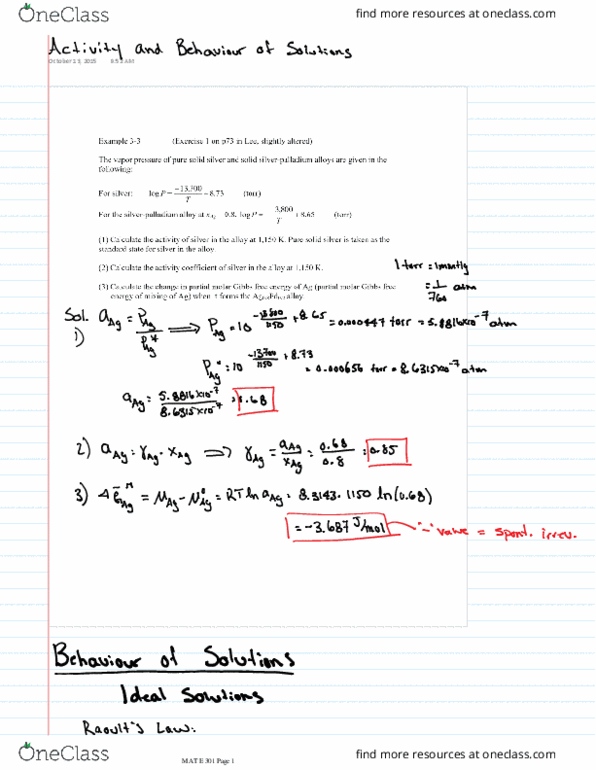 OneClass
find more resources at oneclass.com
Activity and Behaviour of Solutions
October 13, 2015 8:52 AM
Example 3-3 (Exercise 1 on p73 in Lee, slightly altered)
The vapor pressure of pure solid silver and solid silver-palladium alloys are given in the
following:
For silver: log P = −13,700/T + 8.73 (torr)
For the silver-palladium alloy at xAg 0.8, log P = 3,800/T + 8.65 (torr)
(1) Calculate the activity of silver in the alloy at 1,150 K. Pure solid silver is taken as the
standard state for silver in the alloy.
(2) Calculate the activity coefficient of silver in the alloy at 1,150 K.
1 torr = 1 mmHg
= 1/760 atm
(3) Calculate the change in partial molar Gibbs free energy of Ag (partial molar Gibbs free
energy of mixing of Ag) when it forms the alloy.
Sol.
1) aAg = PAg/P*Ag ⟹ PAg = 10^(−13800/1150 + 8.65) = 0.000447 torr = 5.8816×10^-7 atm
P°Ag = 10^(−13700/1150 + 8.73) = 0.000656 torr = 8.6315×10^-7 atm
aAg = 5.8816×10^-7 / 8.6315×10^-7 = 0.68
2) aAg = γAg · xAg ⟹ γAg = aAg/xAg = 0.68/0.8 = 0.85
3) ΔḠAg^M = μAg − μ°Ag = RT ln aAg = 8.3143 · 1150 ln(0.68)
= −3.687 J/mol
"−" value = spont. irrev.
Behaviour of Solutions
Ideal Solutions
Raoult's Law:
OneClass
MAT E 301 Page 1
find more resources at oneclass.com